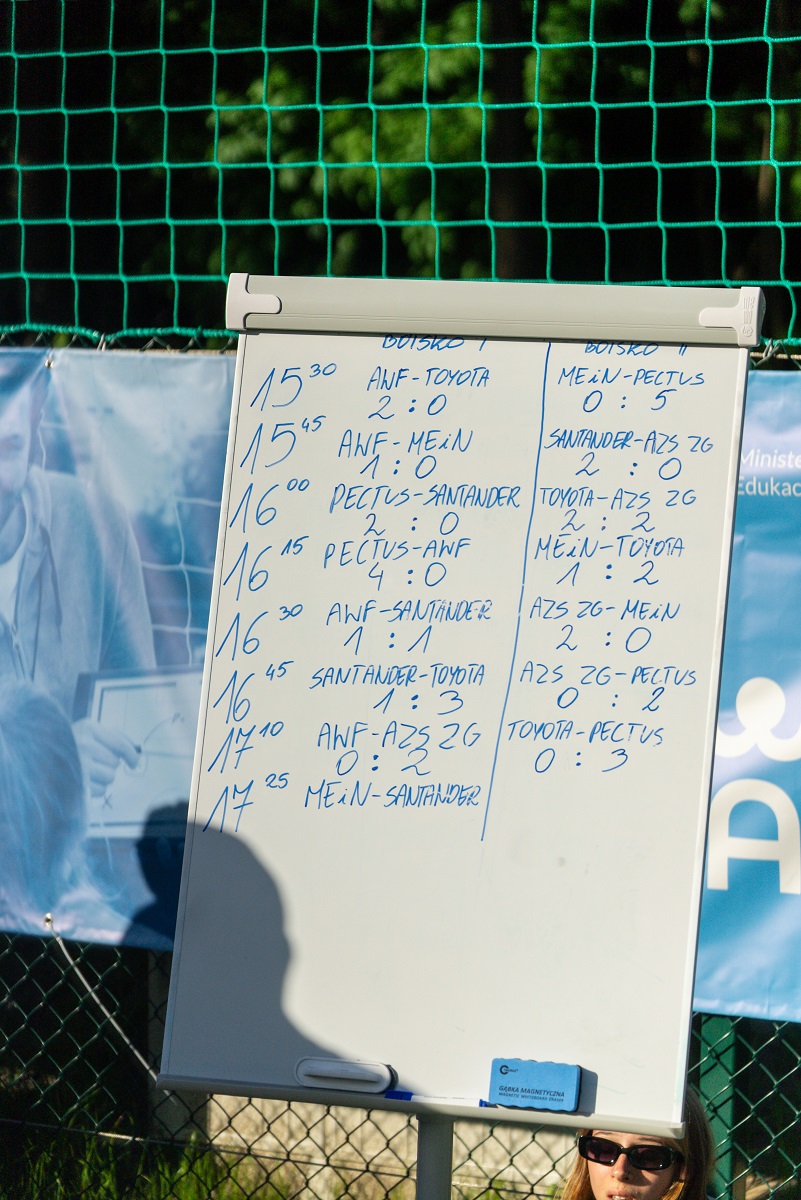 BOISKO I BOISKO II
15 30 AWF-TOYOTA MEiN-PECTUS
2 : 0 0 : 5
15 45 AWF-MEiN SANTANDER-AZS ZG
1 : 0 2 : 0
16 00 PECTUS-SANTANDER TOYOTA-AZS ZG
2 : 0 2 : 2
16 15 PECTUS-AWF MEiN-TOYOTA
4 : 0 1 : 2
16 30 AWF-SANTANDER AZS ZG-MEiN
1 : 1 2 : 0
16 45 SANTANDER-TOYOTA AZS ZG-PECTUS
1 : 3 0 : 2
17 10 AWF-AZS ZG TOYOTA-PECTUS
0 : 2 0 : 3
17 25 MEiN-SANTANDER
Ministe
Edukac
A
GĄBKA MAGNETYCZNA
MAGNETIC WHITEBOARD ERASER